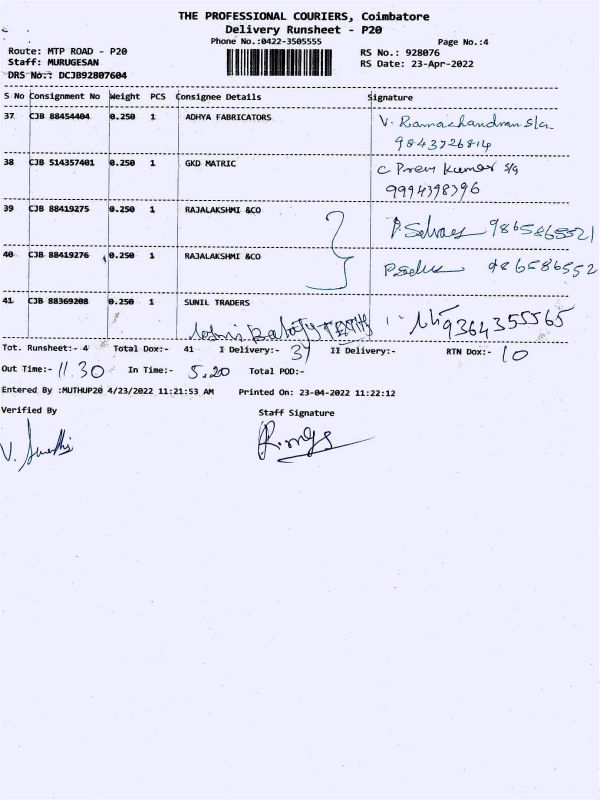 THE PROFESSIONAL COURIERS, Coimbatore
Delivery Runsheet - P20
Phone No.:0422-3505555 Page No.:4
Route: MTP ROAD - P20 RS No.: 928076
Staff: MURUGESAN RS Date: 23-Apr-2022
DRS No.: DCJB92807604
S No Consignment No Weight PCS Consignee Details Signature
37 CJB 88454404 0.250 1 ADHYA FABRICATORS V. Ramachandran s/g.
9843726814
38 CJB 514357401 0.250 1 GKD MATRIC C Prem Kumar s/g
9994398396
39 CJB 88419275 0.250 1 RAJALAKSHMI &CO 9865865521
40 CJB 88419276 0.250 1 RAJALAKSHMI &CO 986586552
41 CJB 88369208 0.250 1 SUNIL TRADERS
9364355565
Tot. Runsheet:- 4 Total Dox:- 41 I Delivery:- II Delivery:- RTN Dox:- 10
Out Time:- 11.30 In Time:- 5.20 Total POD:-
Entered By :MUTHUP20 4/23/2022 11:21:53 AM Printed On: 23-04-2022 11:22:12
Verified By Staff Signature